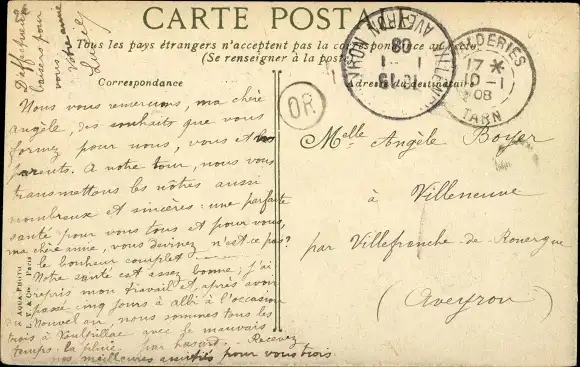 CARTE POSTALE
Tous les pays étrangers n'acceptent pas la correspondance au recto.
(Se renseigner à la poste)
Correspondance
Adresse du destinataire
D'affectueux
baisers pour
vous.
Votre amie
Nous vous remercions, ma chère
angèle, des souhaits que vous
formez pour nous, vous et vos
parents. A notre tour, nous vous
transmettons les nôtres aussi
nombreux et sincères: une parfaite
santé pour vous tous et pour vous,
ma chère amie, vous devinez n'est ce pas?
le bonheur complet
Notre santé est assez bonne; j'ai
repris mon travail et, après avoir
passé cinq jours à albi à l'occasion
du Nouvel an, nous sommes tous les
trois à avec le mauvais
temps: la pluie par hasard. Recevez
nos meilleures amitiés pour vous trois
Melle Angèle Boyer
à Villeneuve
par Villefranche-de-Rouergue
(Aveyron)
OR
AVEYRON
08
VALDERIES
17 *
10 - 1
08
TARN